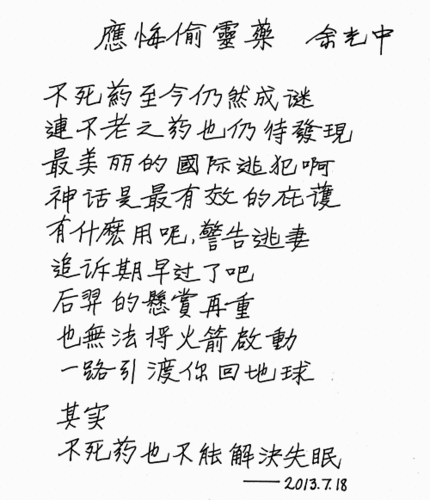 應悔偷靈藥 余光中
不死药至今仍然成谜
連不老之药也仍待發現
最美丽的國际逃犯啊
神话是最有效的庇護
有什麽用呢,警告逃妻
追诉期早过了吧
后羿的懸賞再重
也無法将火箭啟動
一路引渡你回地球
其实
不死药也不能解決失眠
——2013.7.18